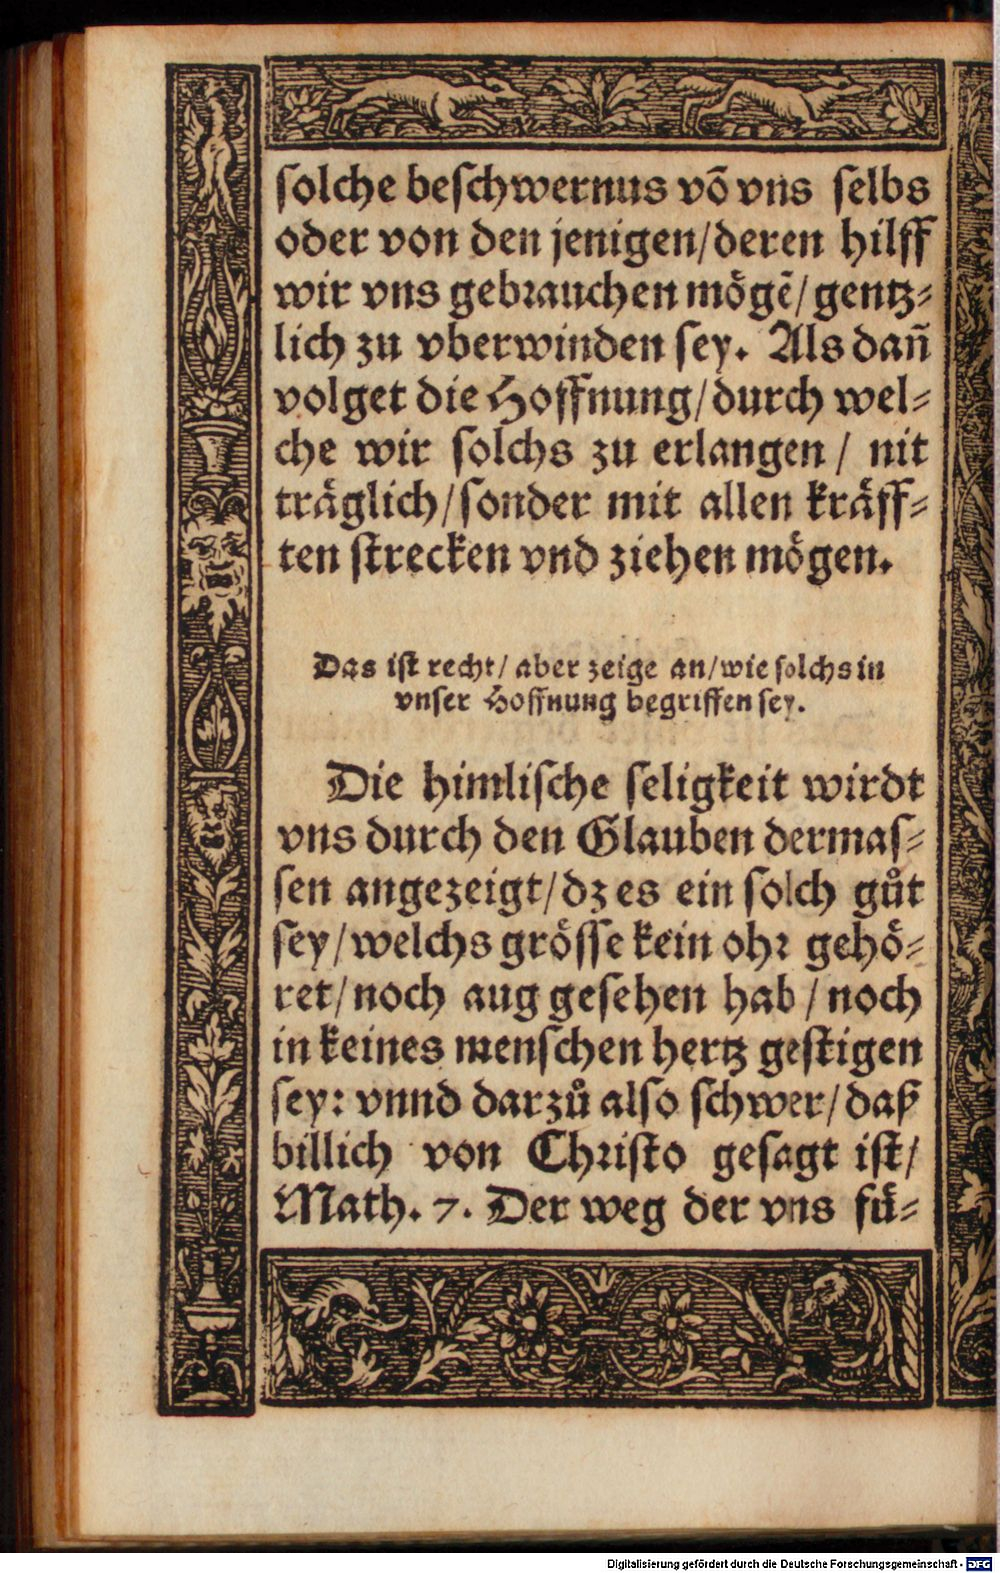 solche beschwernus võ vns selbs
oder von den jenigen/deren hilff
wir vns gebrauchen mögẽ/ gentz-
lich zu vberwinden sey. Als dañ
volget die Hoffnung/durch wel-
che wir solchs zu erlangen / nit
träglich/sonder mit allen kräff-
ten strecken vnd ziehen mögen.
Das ist recht/ aber zeige an/wie solchs in
vnser Hoffnung begriffen sey.
Die himlische seligkeit wirdt
vns durch den Glauben dermas-
sen angezeigt/dz es ein solch gůt
sey/welchs grösse kein ohr gehö-
ret/noch aug gesehen hab / noch
in keines menschen hertz gestigen
sey: vnnd darzů also schwer/daß
billich von Christo gesagt ist/
Math. 7. Der weg der vns fü-
Digitalisierung gefördert durch die Deutsche Forschungsgemeinschaft - DFG